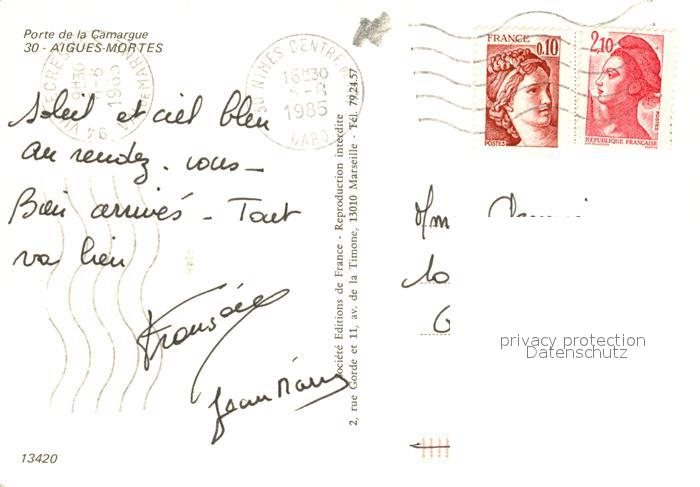 Porte de la Camargue
30 - AIGUES-MORTES
NIMES CENTRE
16H30
1985
GARD
FRANCE
0,10
POSTES
2,10
POSTES
REPUBLIQUE FRANÇAISE
Soleil et ciel bleu
au rendez-vous -
Bien arrivés - Tout
va bien
Jean
Société Editions de France - Reproduction interdite
2, rue Gorde et 11, av. de la Timone, 13010 Marseille - Tél. 79.24.57
privacy protection
Datenschutz
13420